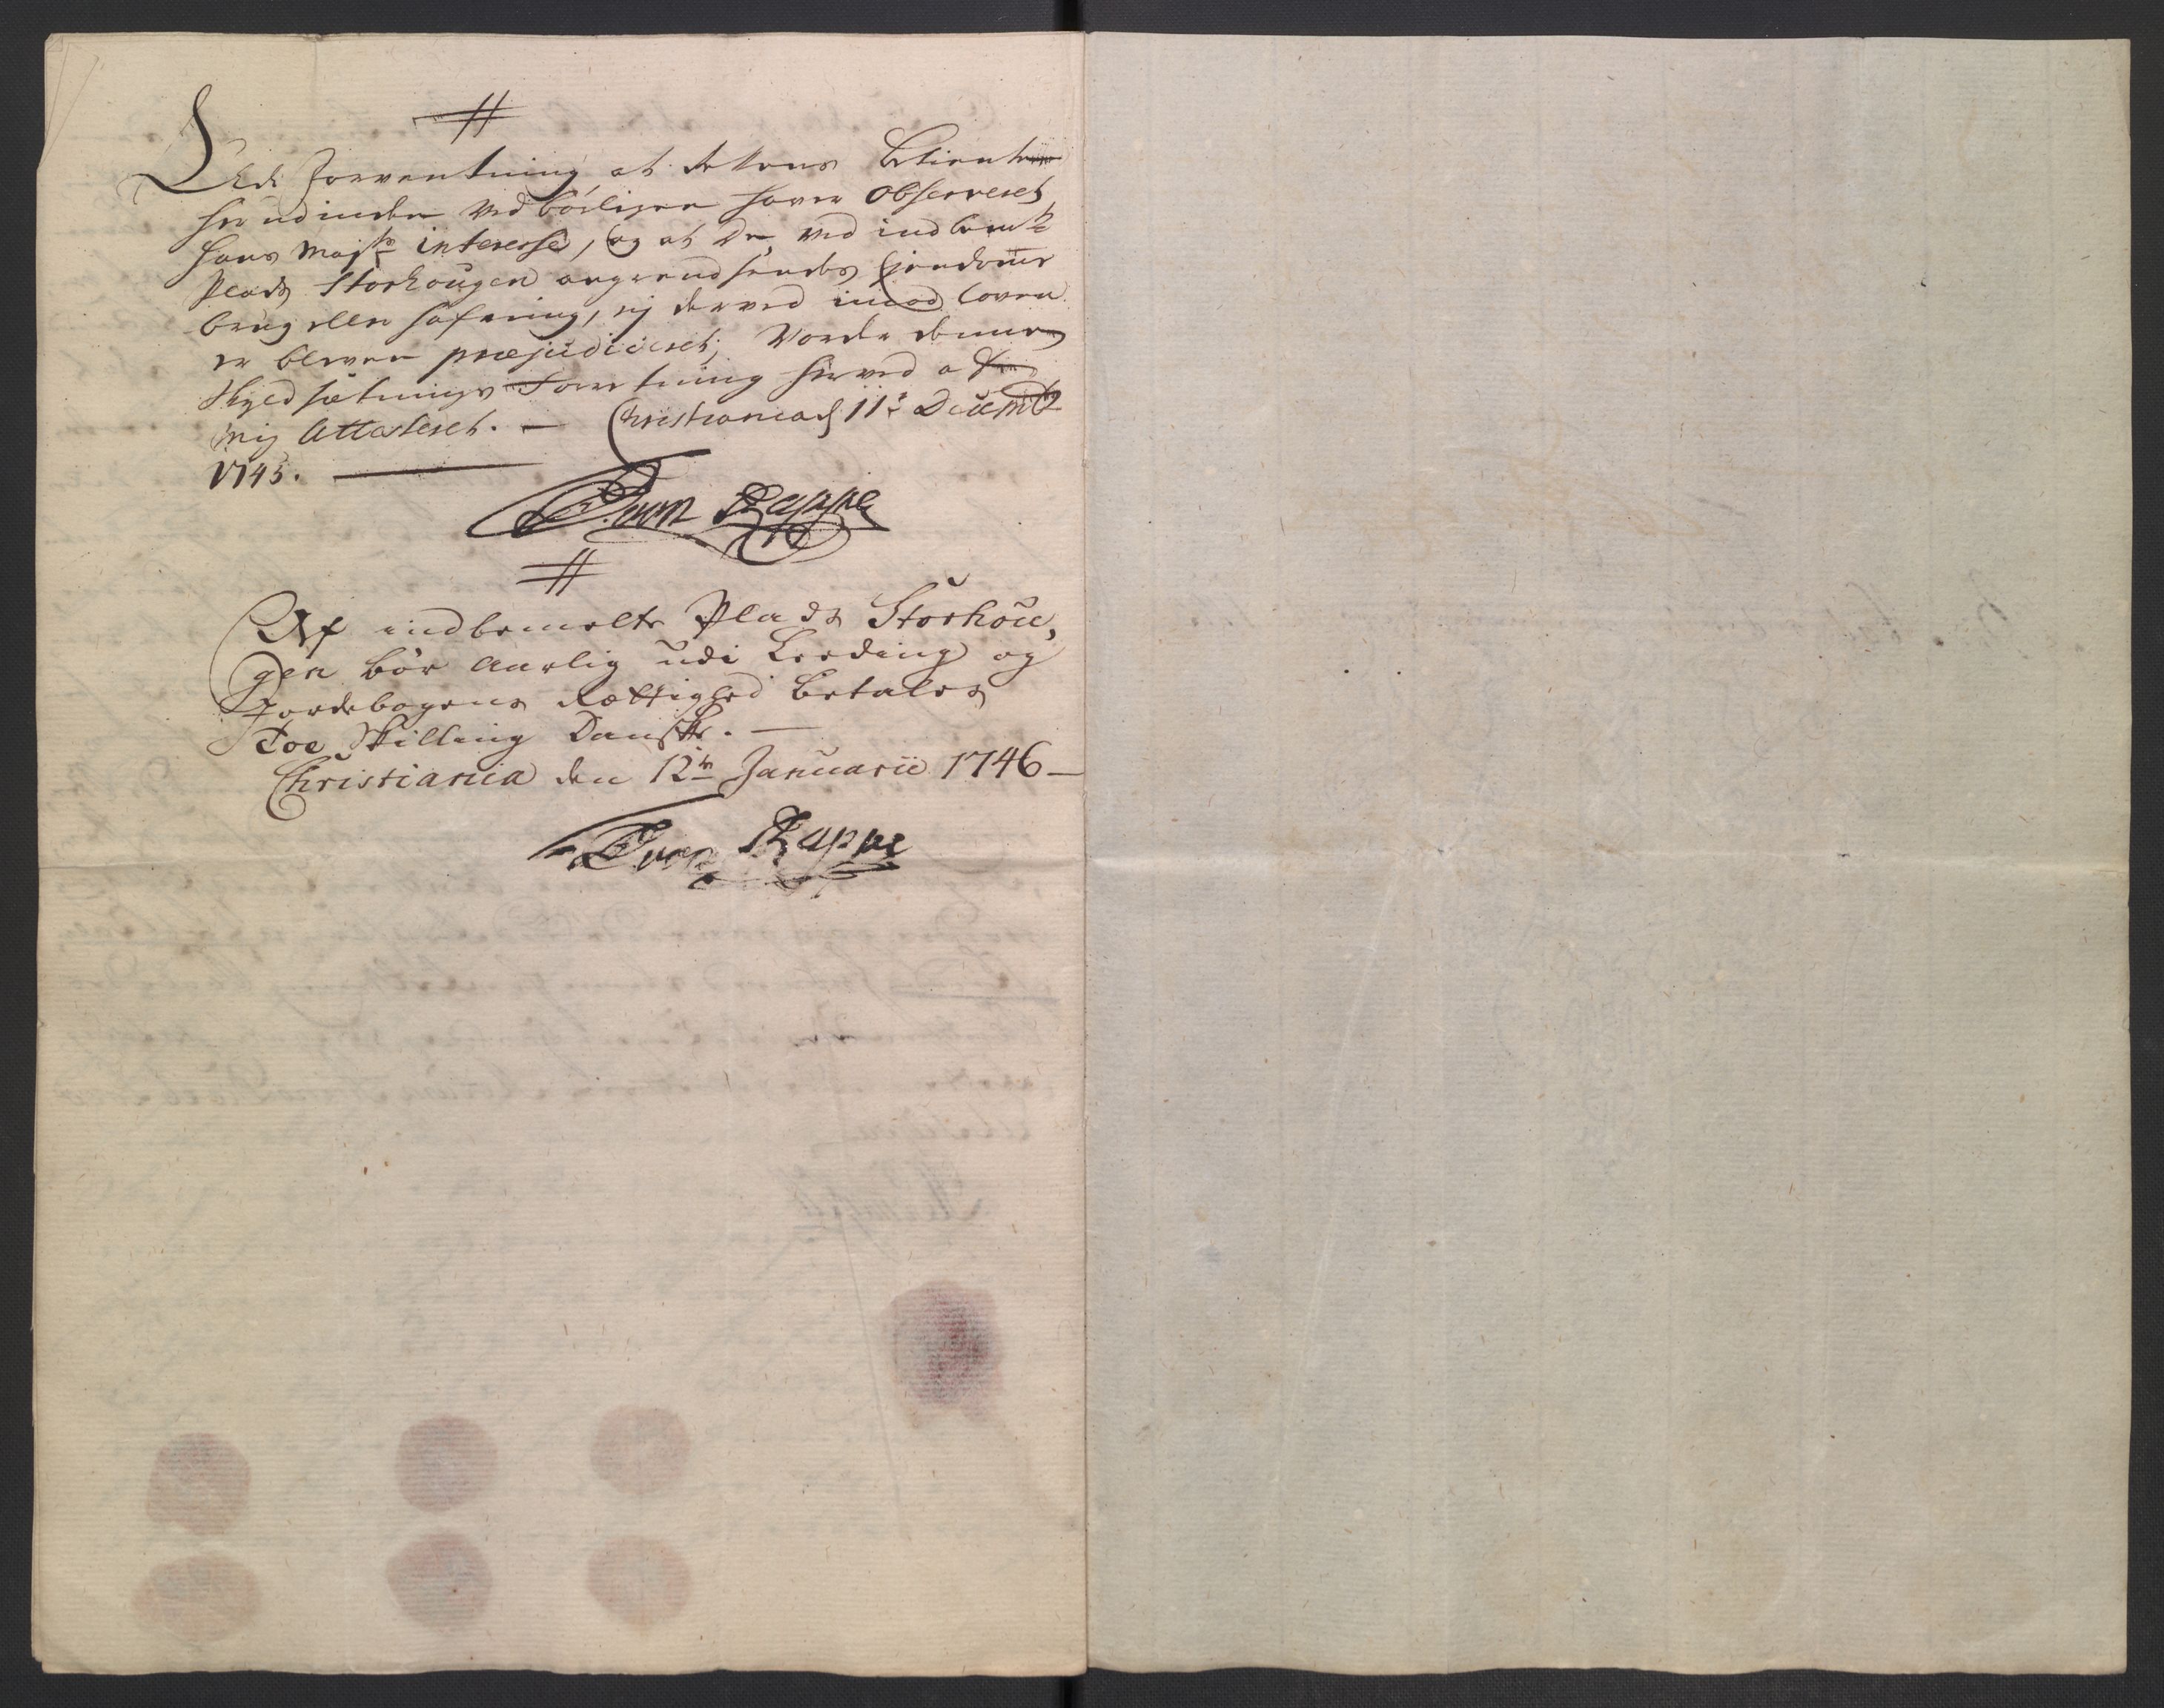 Udi Forventning at Rettens Betientere
her udinden Ved børligen haver Observeret
Hans Maj:ts interesse, og at De, ved indbem:te
Plads Storhougen angrendsendes Ejendomme
brug eller hafning, ej derved imod loven
er bleven præjudiceret; Vorder denne
Skyldsætnings Forretning herved af
mig Attesteret. — Christiania d 11:t Decembr
1745. —
Iver Rappe
Af indbemelte Plads Storhou,
gen bør Aarlig udi Leeding og
Jordebogens Rættighed Betales
Toe Skilling Danske. —
Christiania den 12:te Januarii 1746 —
Iver Rappe